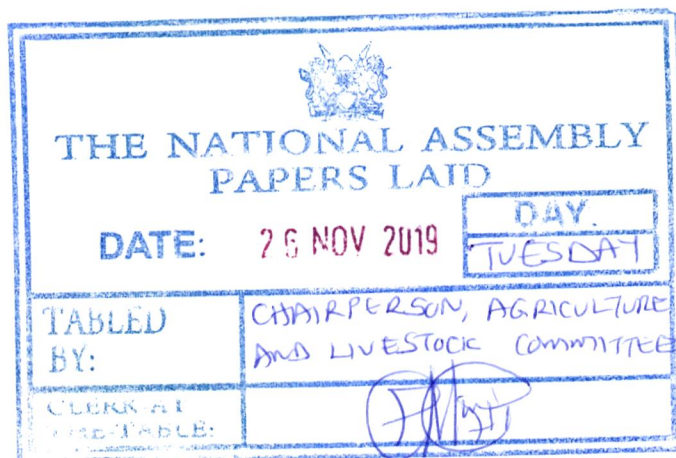 THE NATIONAL ASSEMBLY
PAPERS LAID
DATE: 26 NOV 2019
DAY.
TUESDAY
TABLED
BY:
CHAIRPERSON, AGRICULTURE
AND LIVESTOCK COMMITTEE
CLERK AT
THE-TABLE: